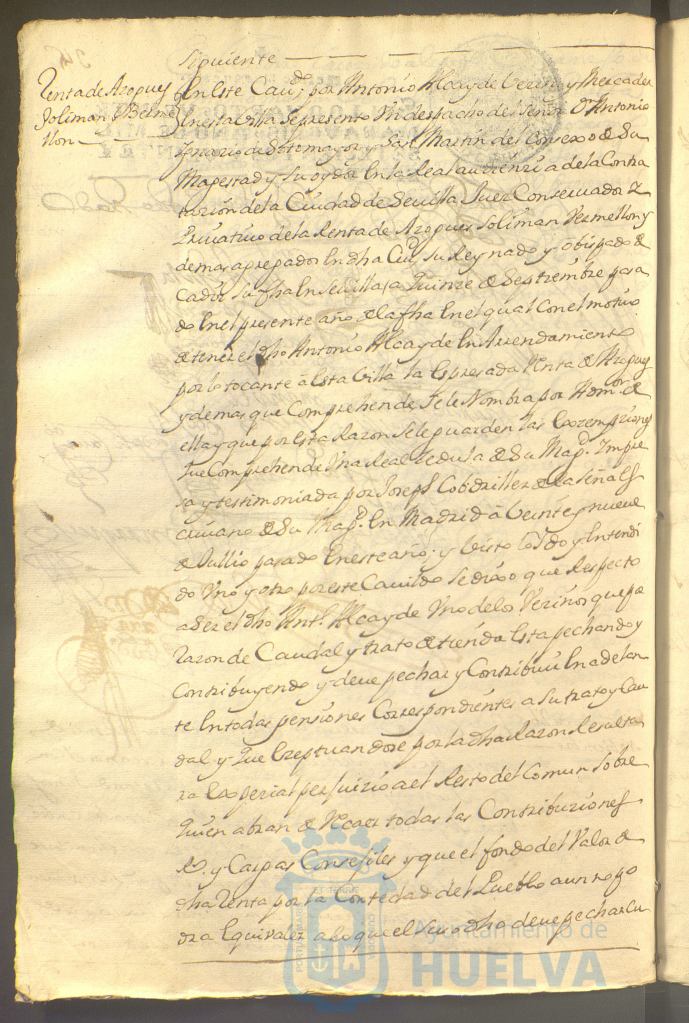 Siguiente
Renta de Azogues
Soliman y Berme
llon
En este Cavdo por Antonio Alcayde Vezino y Mercader
en esta villa se presento Un despacho del Señor Dn Antonio
Ignacio de Sotomayor y San Martin del Consexo de Su
Magestad y su oydor en la Real audienzia de la Contra
tazion de la Ciudad de Sevilla Juez Conservador
Privativo de la Renta de Azogues Soliman Vermellon y
demas agregados en dha Ciud su Reynado y Obispado de
Cadiz su fha en Sevilla a quinze de Septiembre pasa
do en el presente año de la fha en el qual con el motivo
de tener el dho Antonio Alcayde en Arrendamiento
por lo tocante a esta Villa la espresada Renta de Azogues
y demas que Comprehende se le Nombra por Admor de
ella y que por esta Razon se le guarden las exzempziones
que Comprehende Una Real Zedula de Su Magd Impre
sa y testimoniada por Joseph de la Señal es
crivano de Su Magd en Madrid a Veinte y nueve
de Jullio pasado en este año; y Visto leydo y entendi
do Uno y otro por este Cavildo se dixo que Respecto
a Ser el dho Anto Alcayde Uno de los Vezinos que por
razon de Caudal y trato de tienda esta pechando y
Contribuyendo y deve pechar y Contribuir en adelan
te en todas pensiones Correspondientes a su trato y Cau
dal y que exeptuandose por la dha Razon Resulta
ra especial perjuizio a el Resto del Comun Sobre
quien abran de Recaer todas las Contribuziones
Rs y Cargas Consejiles y que el fondo del Valor de
dha Renta por la Cortedad del Pueblo aun no po
dra equivaler a lo que el Suso dho deve pechar Cu
Ayuntamiento de
HUELVA